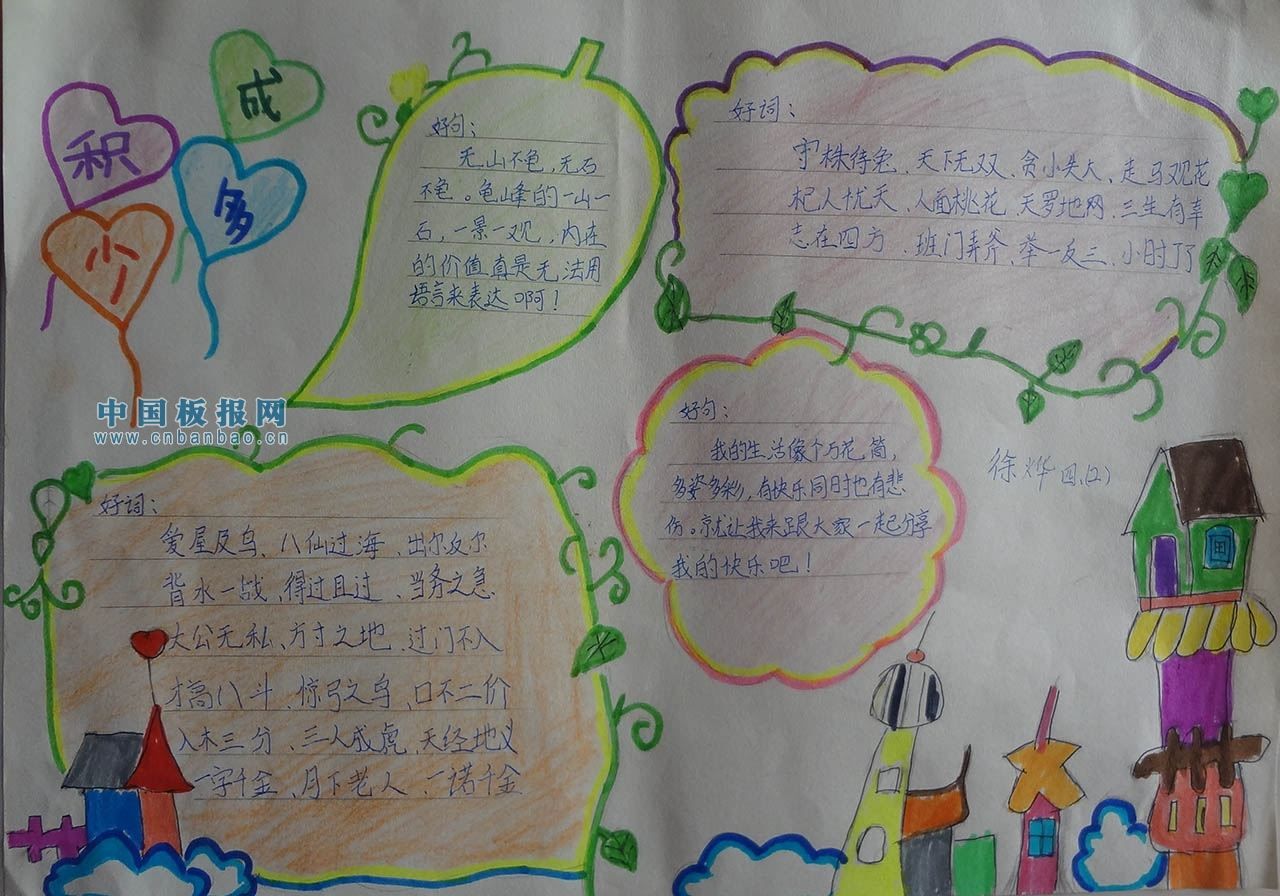 积少成多
好句：
无山不龟，无石
不龟。龟峰的一山一
石，一景一观，内在
的价值真是无法用
语言来表达啊！
好词：
守株待兔、天下无双、贪小失大、走马观花
杞人忧天、人面桃花 天罗地网、三生有幸
志在四方、班门弄斧、举一反三、小时了了
中国板报网
www.cnbanbao.cn
好词：
爱屋及乌、八仙过海、出尔反尔
背水一战、得过且过、当务之急
大公无私、方寸之地、过门不入
才高八斗、惊弓之鸟、口不二价
入木三分、三人成虎、天经地义
一字千金、月下老人、一诺千金
好句：
我的生活像个万花筒，
多姿多彩，有快乐同时也有悲
伤。就让我来跟大家一起分享
我的快乐吧！
徐烨 四、(2)